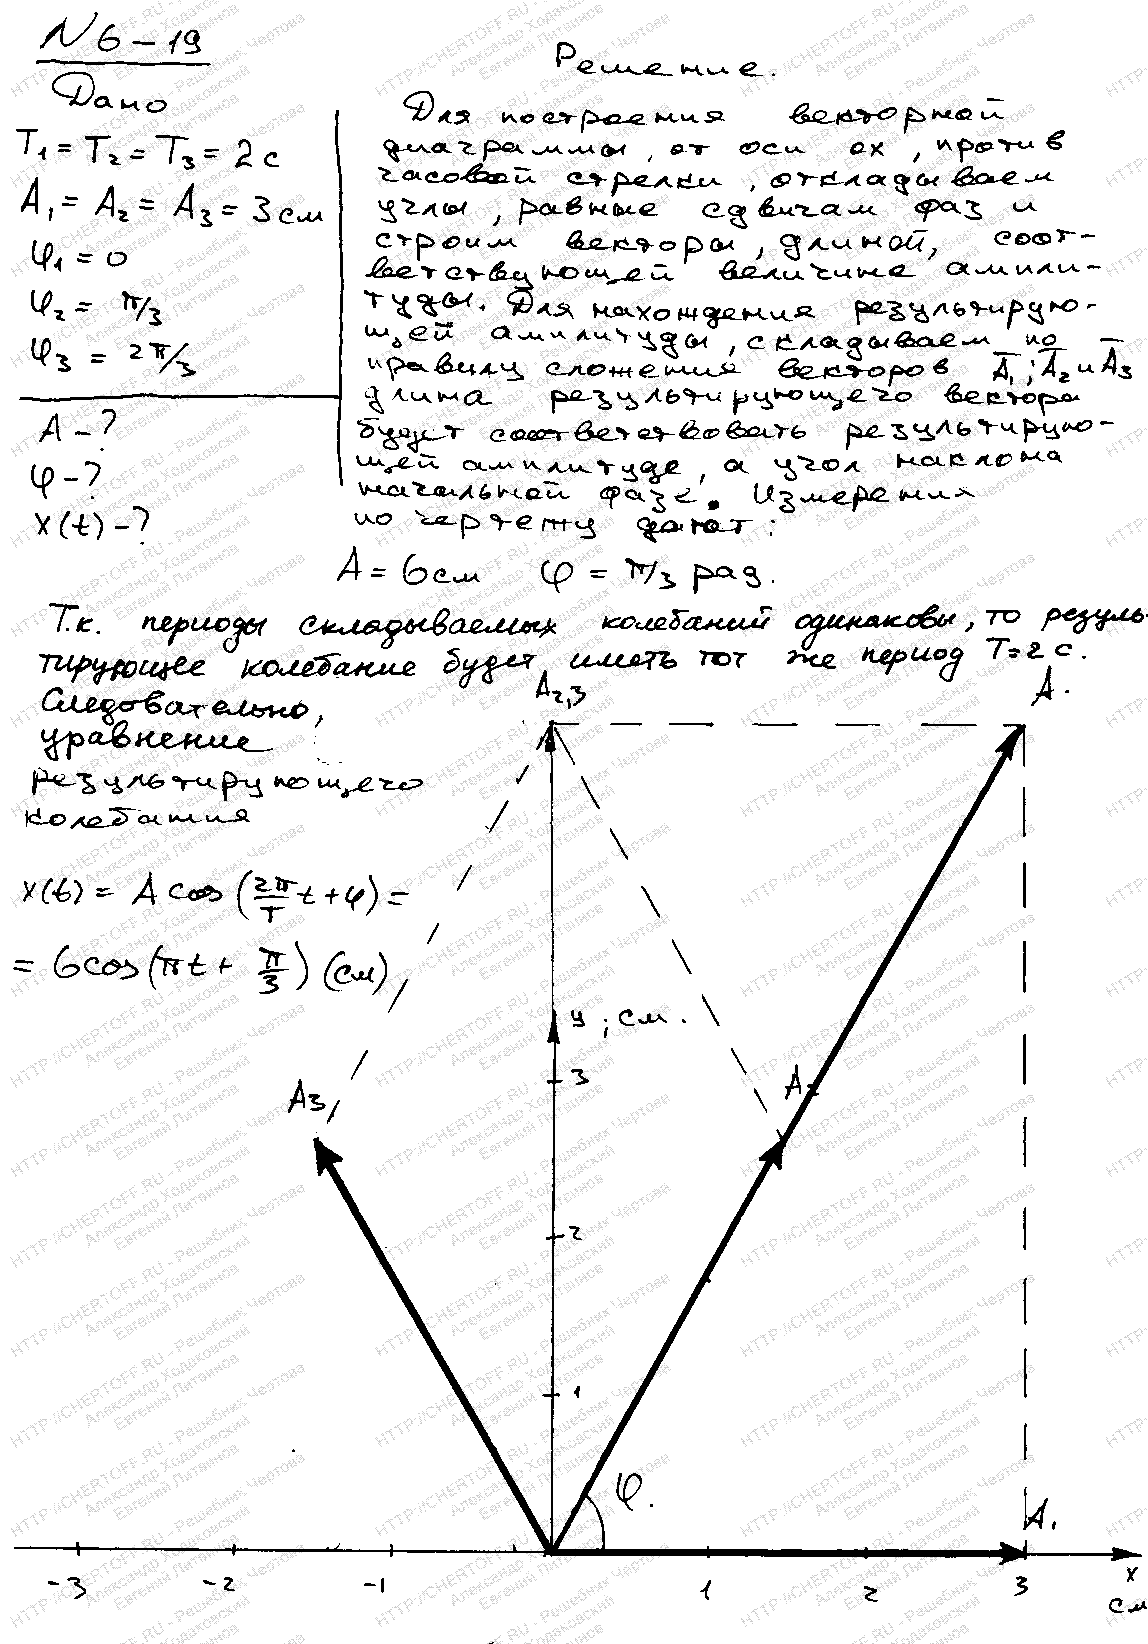 N 6-19
Дано
T₁ = T₂ = T₃ = 2 с
A₁ = A₂ = A₃ = 3 см
φ₁ = 0
φ₂ = π/3
φ₃ = 2π/3
A - ?
φ - ?
x(t) - ?
Решение.
Для построения векторной
диаграммы, от оси ох, против
часовой стрелки, откладываем
углы, равные сдвигам фаз и
строим векторы, длиной, соот-
ветствующей величине ампли-
туды. Для нахождения результирую-
щей амплитуды, складываем по
правилу сложения векторов A̅₁; A̅₂ и A̅₃
длина результирующего вектора
будет соответствовать результирую-
щей амплитуде, а угол наклона
начальной фазе. Измерения
по чертежу дают:
A = 6 см φ = π/3 рад.
Т.к. периоды складываемых колебаний одинаковы, то резуль-
тирующее колебание будет иметь тот же период T = 2 с.
Следовательно,
уравнение
результирующего
колебания
x(t) = A cos (2π/T t + φ) =
= 6 cos (πt + π/3) (см),
A₂,₃
A.
y, см.
A₃
A₂
3
2
1
φ.
A₁
-3 -2 -1 1 2 3 x
см
HTTP://CHERTOFF.RU - Решебник Чертова
Александр Ходаковский
Евгений Литвинов